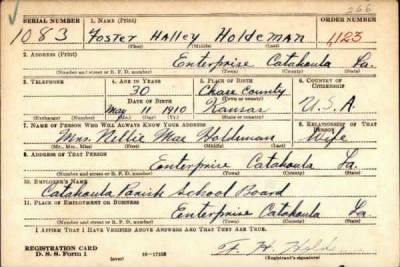 266
SERIAL NUMBER 1. NAME (Print) ORDER NUMBER
1083 Foster Halley Holdeman 1,123
(First) (Middle) (Last)
2. ADDRESS (Print)
Enterprise Catahoula La.
(Number and street or R. F. D. number) (Town) (County) (State)
3. TELEPHONE 4. AGE IN YEARS 5. PLACE OF BIRTH 6. COUNTRY OF CITIZENSHIP
30 Chase County
DATE OF BIRTH (Town or county)
May 11 1910 Kansas U.S.A.
(Exchange) (Number) (Mo.) (Day) (Yr.) (State or country)
7. NAME OF PERSON WHO WILL ALWAYS KNOW YOUR ADDRESS 8. RELATIONSHIP OF THAT PERSON
Mrs. Nettie Mae Holdeman Wife
(Mr., Mrs., Miss) (First) (Middle) (Last)
9. ADDRESS OF THAT PERSON
Enterprise Catahoula La.
(Number and street or R. F. D. number) (Town) (County) (State)
10. EMPLOYER'S NAME
Catahoula Parish School Board
11. PLACE OF EMPLOYMENT OR BUSINESS
Enterprise Catahoula La.
(Number and street or R. F. D. number) (Town) (County) (State)
I AFFIRM THAT I HAVE VERIFIED ABOVE ANSWERS AND THAT THEY ARE TRUE.
REGISTRATION CARD
D. S. S. Form 1 (over) 16—17105 F. H.
(Registrant's signature)